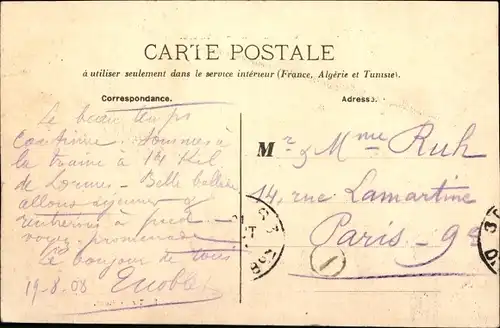 CARTE POSTALE
à utiliser seulement dans le service intérieur (France, Algérie et Tunisie).
Correspondance.
Adresse.
Le beau temps
continue. Sommes à
la à 14 Kil
de Lormes - Belle
allons déjeuner &
rentrerons à pied
promenade
Le bonjour de tous
19-8-08
Mr & Mme Ruh
14, rue Lamartine
Paris - 9e
1